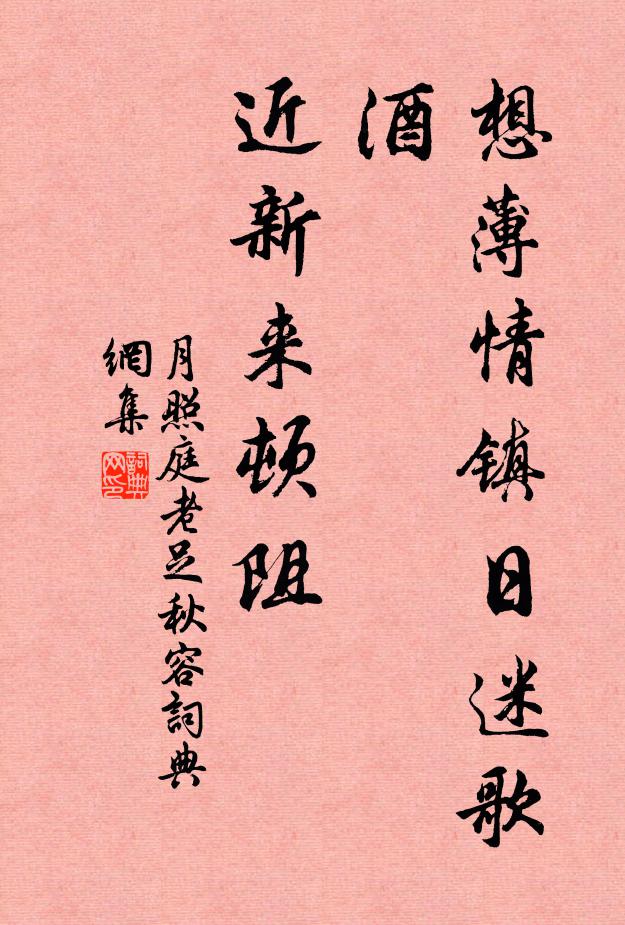 想薄情镇日迷歌
酒
近新来顿阻
月照庭老足秋容詞典
網集
詞典
网印